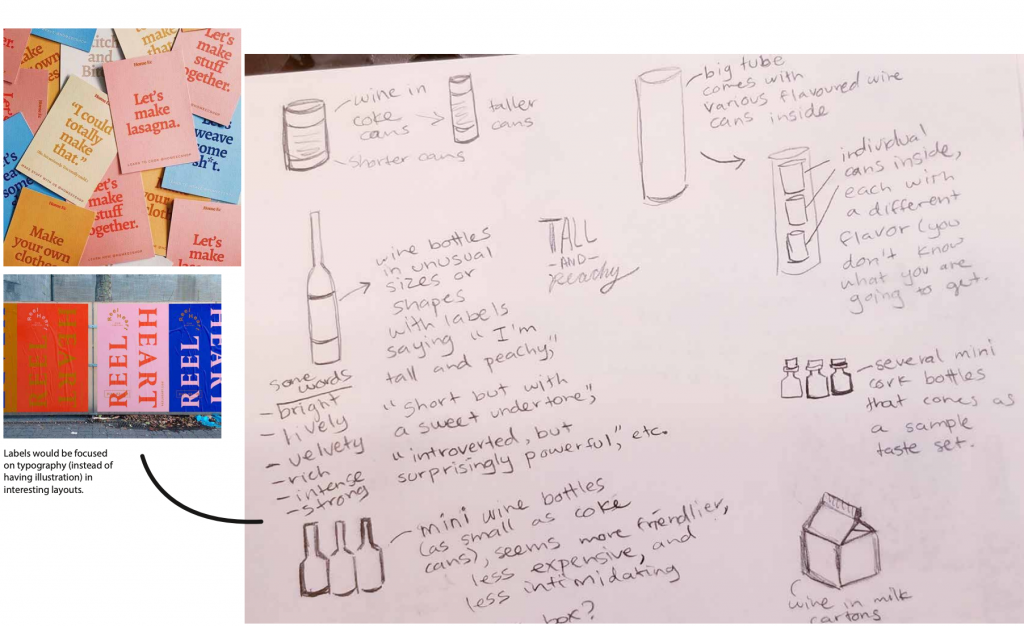 er.
Make
own
clothes
itch
and
Bi
make
that.
Let's
make
stuff
together.
Let's
make
lasagna.
"I could
totally
make
that."
weave
some
sh*t.
et's
make
stuff
ogether.
your
Make
your own
clothes
Let's
make
REEL
HEART
REEL
HEART
REEL
HEART
Labels would be focused
on typography (instead of
having illustration) in
interesting layouts.
wine in
coke
cans
shorter cans
taller
cans
big tube
comes with
various flavoured wine
cans inside
individual
cans inside,
each with
a different
flavor (you
don't know
what you are
going to get.
wine bottles
in unusual
sizes or
shapes
with labels
saying "I'm
tall and peachy,"
"short but with
a sweet undertone,"
"introverted, but
surprisingly powerful," etc.
TALL
-AND-
Peachy
some
words
- bright
- lively
- velvety
- rich
- intense
- strong
several mini
cork bottles
that comes as
a sample
taste set.
mini wine bottles
(as small as coke
cans), seems more friendlier,
less expensive, and
less intimidating
box?
wine in milk
cartons